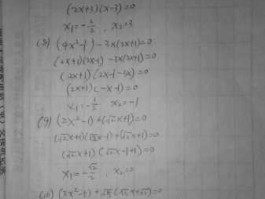 (2x+1)(x-3)=0
x₁=-1/2, x₂=3
(8) (4x²-1)-3x(2x+1)=0
(2x+1)(2x-1)-3x(2x+1)=0
(2x+1)(2x-1-3x)=0
(2x+1)(-x-1)=0
x₁=-1/2 x₂=-1
(9) (2x²-1)+(√2x+1)=0
(√2x+1)(√2x-1)+(√2x+1)=0
(√2x+1)(√2x-1+1)=0
x₁=-√2/2 x₂=0
(10)